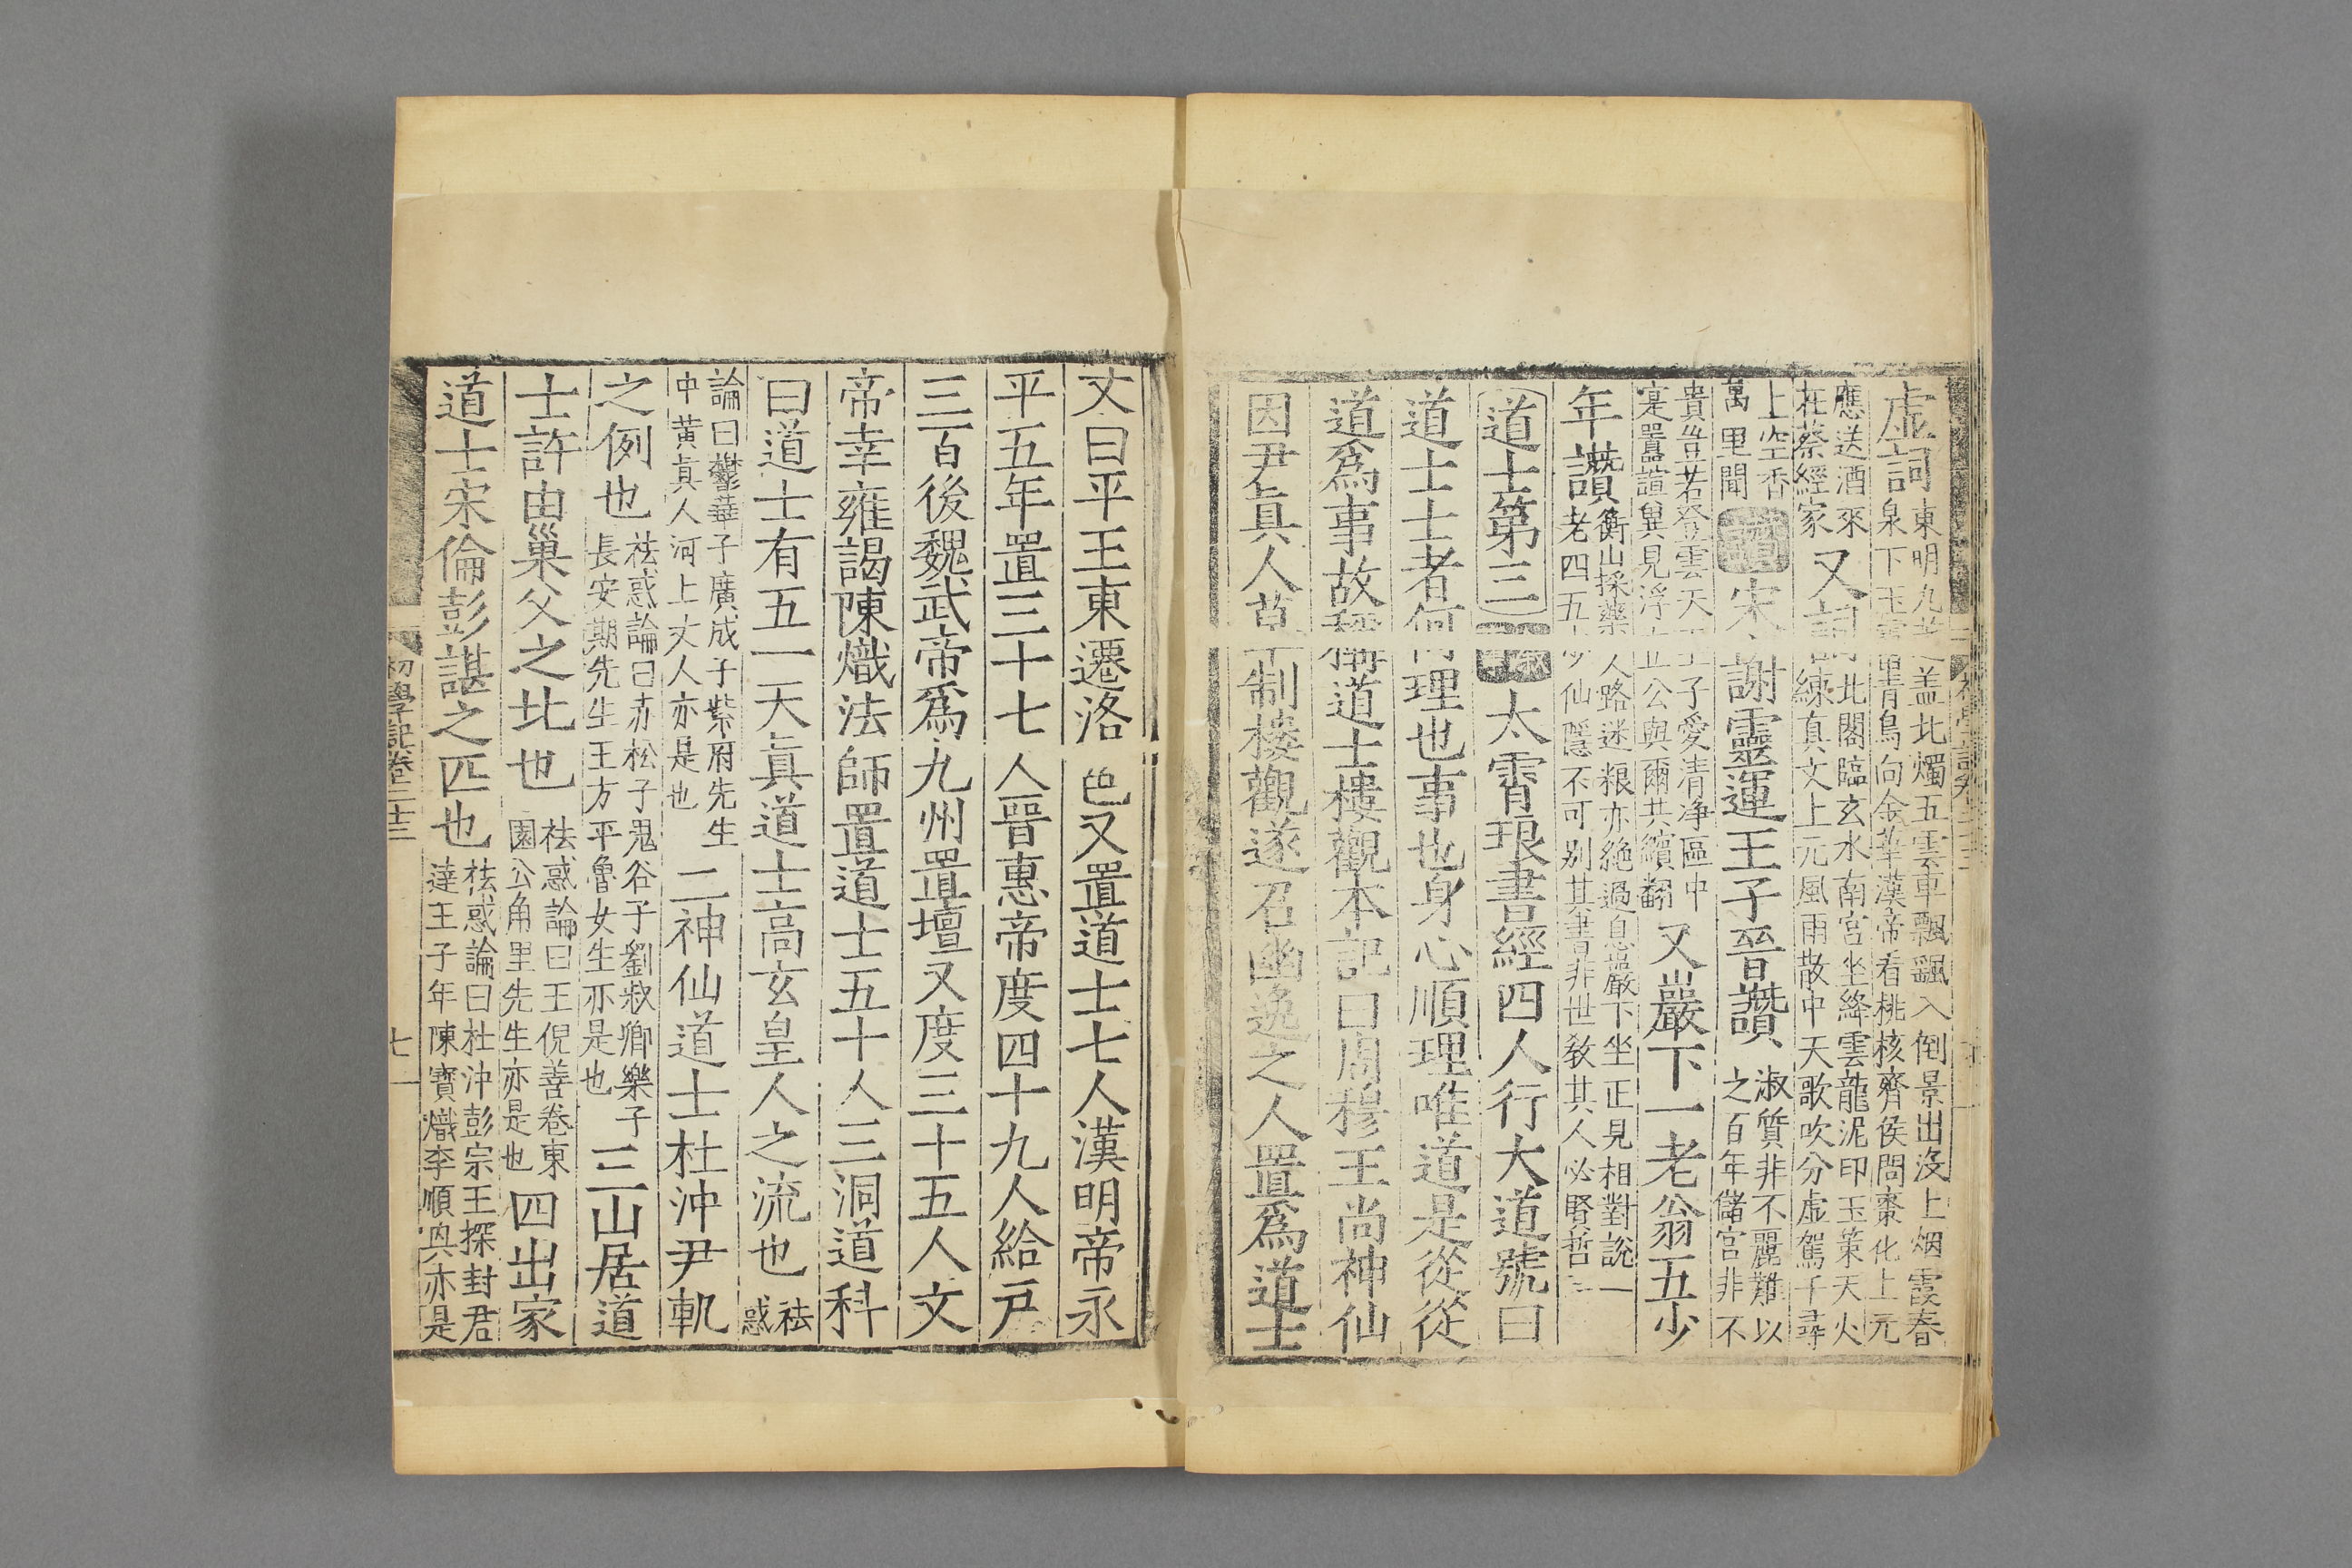 虛詞東明九芝盖北燭五雲車飄颻入倒景出沒上烟霞春
泉下玉霤青鳥向金華漢帝看桃核齊侯問棗花上元
應送酒來在蔡經家又詞北閣臨玄水南宮坐絳雲龍泥印玉策天火
練真文上元風雨散中天歌吹分虛駕千尋
上空香萬里聞讚宋謝靈運王子晉讚淑質非不麗難以
之百年儲宮非不
貴豈若登雲天王子愛清淨區中
寔囂諠巽見浮丘公與爾共繽翻又巖下一老翁五少
年讚衡山採藥人路迷粮亦絶過息巖下坐正見相對說一
老四五少仙隱不可别其書非世敎其人必賢哲
道士第三敘事太霄琅書經四人行大道號曰
道士士者何理也事也身心順理唯道是從從
道爲事故稱道士樓觀本記曰周穆王尚神仙
因尹真人草制樓觀遂召幽逸之人置爲道士
文曰平王東遷洛邑又置道士七人漢明帝永
平五年置三十七人晉惠帝度四十九人給戸
三百後魏武帝爲九州置壇又度三十五人文
帝幸雍謁陳熾法師置道士五十人三洞道科
曰道士有五一天真道士高玄皇人之流也祛
惑
論曰鬱華子廣成子紫府先生
中黄真人河上丈人亦是也二神仙道士杜沖尹軌
之例也祛惑論曰赤松子鬼谷子劉叔卿樂子
長安期先生王方平魯女生亦是也三山居道
士許由巢父之比也祛惑論曰王倪善卷東
園公角里先生亦是也四出家
道士宋倫彭諶之匹也祛惑論曰杜沖彭宗王探封君
達王子年陳寶熾李順興亦是
初學記卷二十三
七